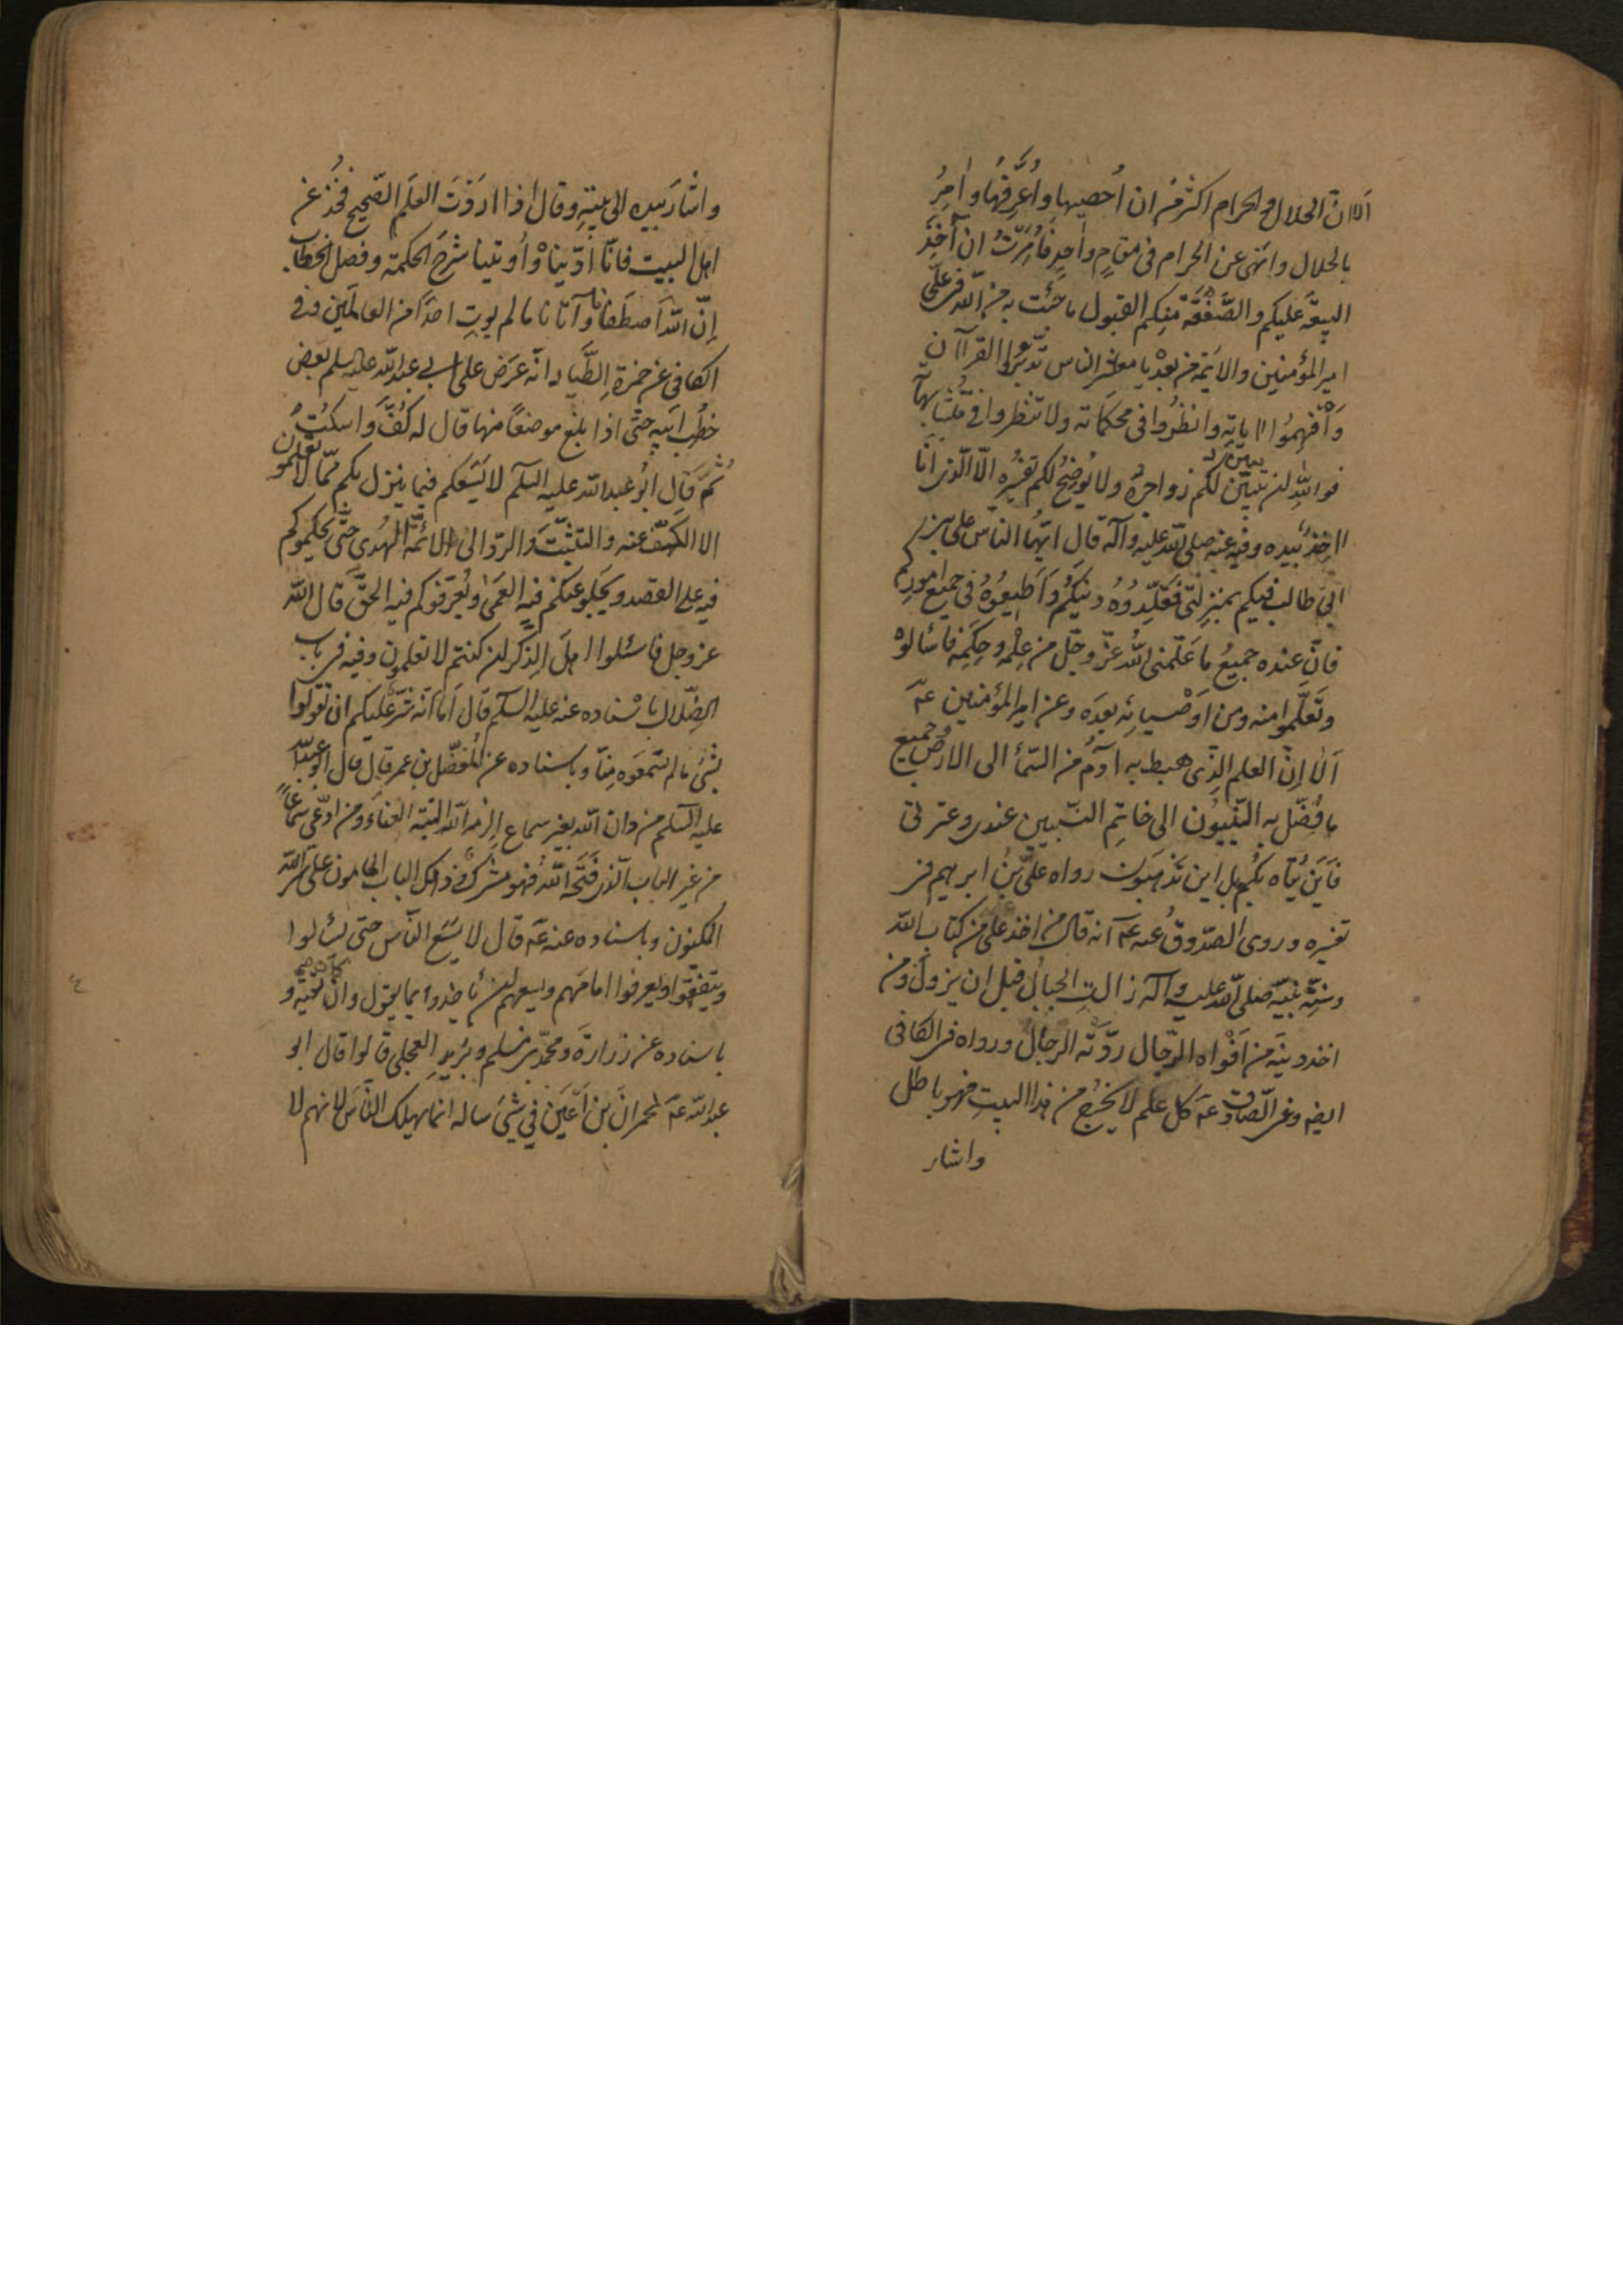 الا ان الحلال والحرام اکثر من ان اُحصیها واُعَرِّفَها واٰمُرُ
بالحلال وانهی عن الحرام فی مقامٍ واحدٍ فاُمِرْتُ ان آخُذَ
البیعَة علیکم والصَّفْقَة منکم القبول ما جئت به من الله فی علیّ
امیر المؤمنین والائمة من بعده یا معاشر الناس تدبّروا القرآن
وَافْهِموُا اٰیاته وانظُروُا فی محکماته ولا تنظروا فی مُتَشابِهِهِ
فواللهِ لن یبیّن لکم زواجرهُ ولا یُوضِحُ لکم تفسیره الّا الّذی اَنَا
اٰخِذٌ بیده وفیه عنه صلی الله علیه وآله قال ایّها النّاس علی بن
ابی طالب فیکم بمنزِلَتی فَقَلِّدُوهُ دینَکُم وَاَطیعُوهُ فی جمیع امورکم
فانّ عنده جمیعُ ما عَلَّمنی اللهُ عزّ وجلّ من عِلْمِه وحِکَمِه فاسْألوهُ
وتَعَلَّموا منه ومن اَوْصیائِه بعدَه وعن امیر المؤمنین عَه
اَلٰا اِنّ العلم الذِی هبط به اٰدَمُ من السّمأ الی الارض جمیع
ما فُضِّل به النّبیّوُن الی خاتِمِ النّبیین عندی وعترتی
فَاَینَ یُتاه بکُم بل این تَذهَبون رواه علیّ بنُ ابرهیم فی
تفسیره وروی الصّدوقُ عنه عَه انه قال من اخذ علمه من کتاب الله
وسُنَّة نبیّه صلی الله علیه وآله زالتِ الجبالُ قبل ان یزول ومن
اخذ دینَه من اَفْواه الرّجال رَدَّتْه الرّجالُ ورواه فی الکافی
ایضه وعن الصّادق عَه کل علم لا یخرج من هذا البیتِ فهو باطل
واشار
واشارَ بیده الی بیتِه وقال اذا اردْتَ العلمَ الصّحیح فخُذْ عن
اهل البیت فانّا اُوتیناهُ واُوتینا شَرْحَ الحکمة وفصل الخطاب
اِنّ اللهَ اصطَفانا وآتانا ما لم یوتِ احداً من العالَمین وفی
الکافی عن حمزة الطَّیار انّه عَرَض علی ابی عبد الله علیه السلم بعض
خُطَبِ ابیه حتّی اذا بلغ موضعاً منها قال له کُفَّ وَاسکُتْ
ثُمَّ قال ابُو عبد الله علیه السلم لا یَسَعُکم فیما ینزل بکم ممّا لا تعلمون
الا الکَفّ عنه والتَثَبُّتَ والردّ الی الائمّة الهُدی حتّی یحکموکم
فیه علی القصد ویجلو عنکم فیه العَمیٰ ویُعَرّفوکم فیه الحقَّ قال الله
عز وجل فاسئلوا اهلَ الذِکر ان کنتم لا تعلمون وفیه فی باب
الضّلال باسْناده عنه علیه السلم قال اَما انّه شرٌّ علیکم ان تقولوا
بشیء ما لم تسمعوه مِنّا وباسناده عن المفضّل بن عمر قال قال ابو عبد الله
علیه السلم من دان الله بغیر سماع الزمه الله البتة العناء ومن ادّعی سَماعاً
من غیر الباب الّذی فَتَحَه اللهُ فهو مشرک وذلک الباب المامون علی سرّ الله
المکنون وباسناده عنه عَه قال لا یَسَع النّاس حتی یسْألوا
ویتفقّهوا ویعرفوا امامَهم ویسعهم ان یأخذوا بما یقول وان کان تقیّة و
باسناده عن زرارةَ ومحمّد بن مسلم وبُرَیدٍ العجلی قالوا قال ابو
عبد الله عَه لحمرانَ بن اَعْیَن فی شیءَ ساله انما یهلک النّاسُ لانهم لا